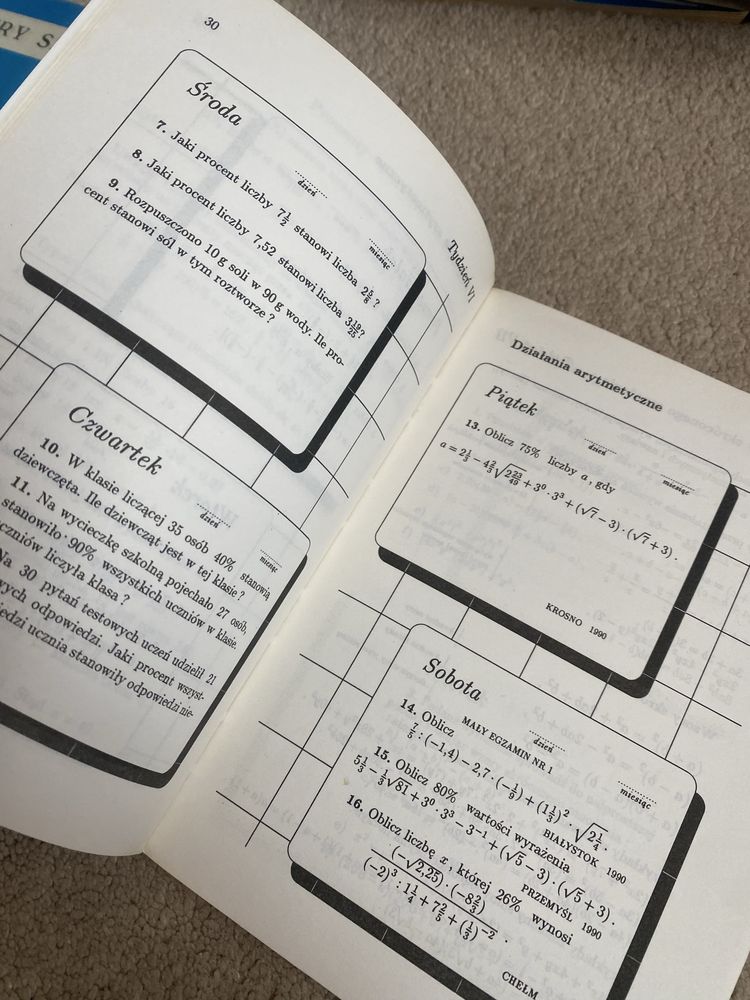 RY S
30
Środa
dzień
miesiąc
7. Jaki procent liczby 7½ stanowi liczba 2⅝ ?
8. Jaki procent liczby 7,52 stanowi liczba 3 19/25?
9. Rozpuszczono 10 g soli w 90 g wody. Ile pro-
cent stanowi sól w tym roztworze ?
Tydzień VI
Czwartek
dzień
miesiąc
10. W klasie liczącej 35 osób 40% stanowią
dziewczęta. Ile dziewcząt jest w tej klasie ?
11. Na wycieczkę szkolną pojechało 27 osób,
stanowiło 90% wszystkich uczniów w klasie.
uczniów liczyła klasa ?
Na 30 pytań testowych uczeń udzielił 21
odpowiedzi. Jaki procent wszyst-
ucznia stanowiły odpowiedzi nie-
Działania arytmetyczne
Piątek
dzień
miesiąc
13. Oblicz 75% liczby a , gdy
KROSNO 1990
Sobota
dzień
miesiąc
MAŁY EGZAMIN NR 1
14. Oblicz
7/5 : (−1,4) − 2,7 · (−1/9) + (1⅓)² · √(2¼) .
BIAŁYSTOK 1990
15. Oblicz 80% wartości wyrażenia
5⅓ − ⅓√81 + 3⁰ · 3³ − 3⁻¹ + (√5 − 3) · (√5 + 3) .
PRZEMYŚL 1990
16. Oblicz liczbę x , której 26% wynosi
(−√2,25) · (−8⅔)
(−2)³ : 1¼ + 7⅖ + (⅓)⁻² .
CHEŁM